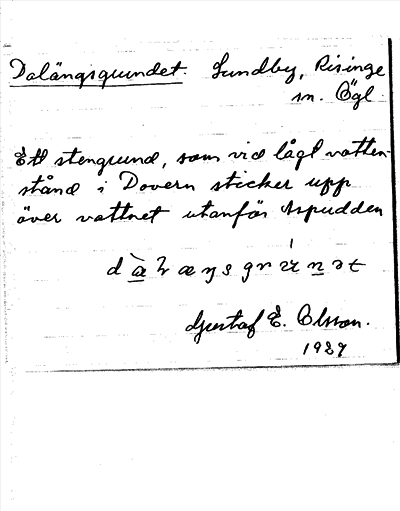 Dalängsgrundet. Sundby, Risinge
sn. Ögl.
Ett stengrund, som vid lågt vatten-
stånd i Dovern sticker upp
över vattnet utanför Aspudden
Gustaf E. Olsson.
1927